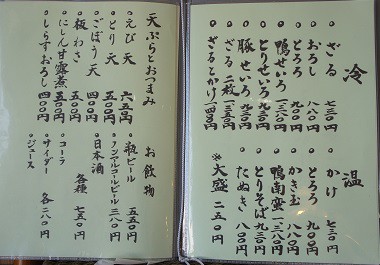 冷
ざる 七三〇円
おろし 八八〇円
とろろ 九〇〇円
鴨せいろ 一三八〇円
とりせいろ 九三〇円
豚せいろ 九三〇円
ざる二枚 一三五〇円
ざるとかけ 一四〇〇円
温
かけ 七三〇円
とろろ 九〇〇円
かき玉 八八〇円
鴨南蛮 一三八〇円
とりそば 九三〇円
たぬき 八〇〇円
※大盛 二五〇円
天ぷらとおつまみ
えび天 六五〇円
とり天 五五〇円
ごぼう天 四〇〇円
板わさ 五〇〇円
にしん甘露煮 五五〇円
しらすおろし 四〇〇円
お飲物
瓶ビール 五五〇円
ノンアルコールビール 三八〇円
日本酒
各種 七五〇円
コーラ
サイダー 各二八〇円
ジュース